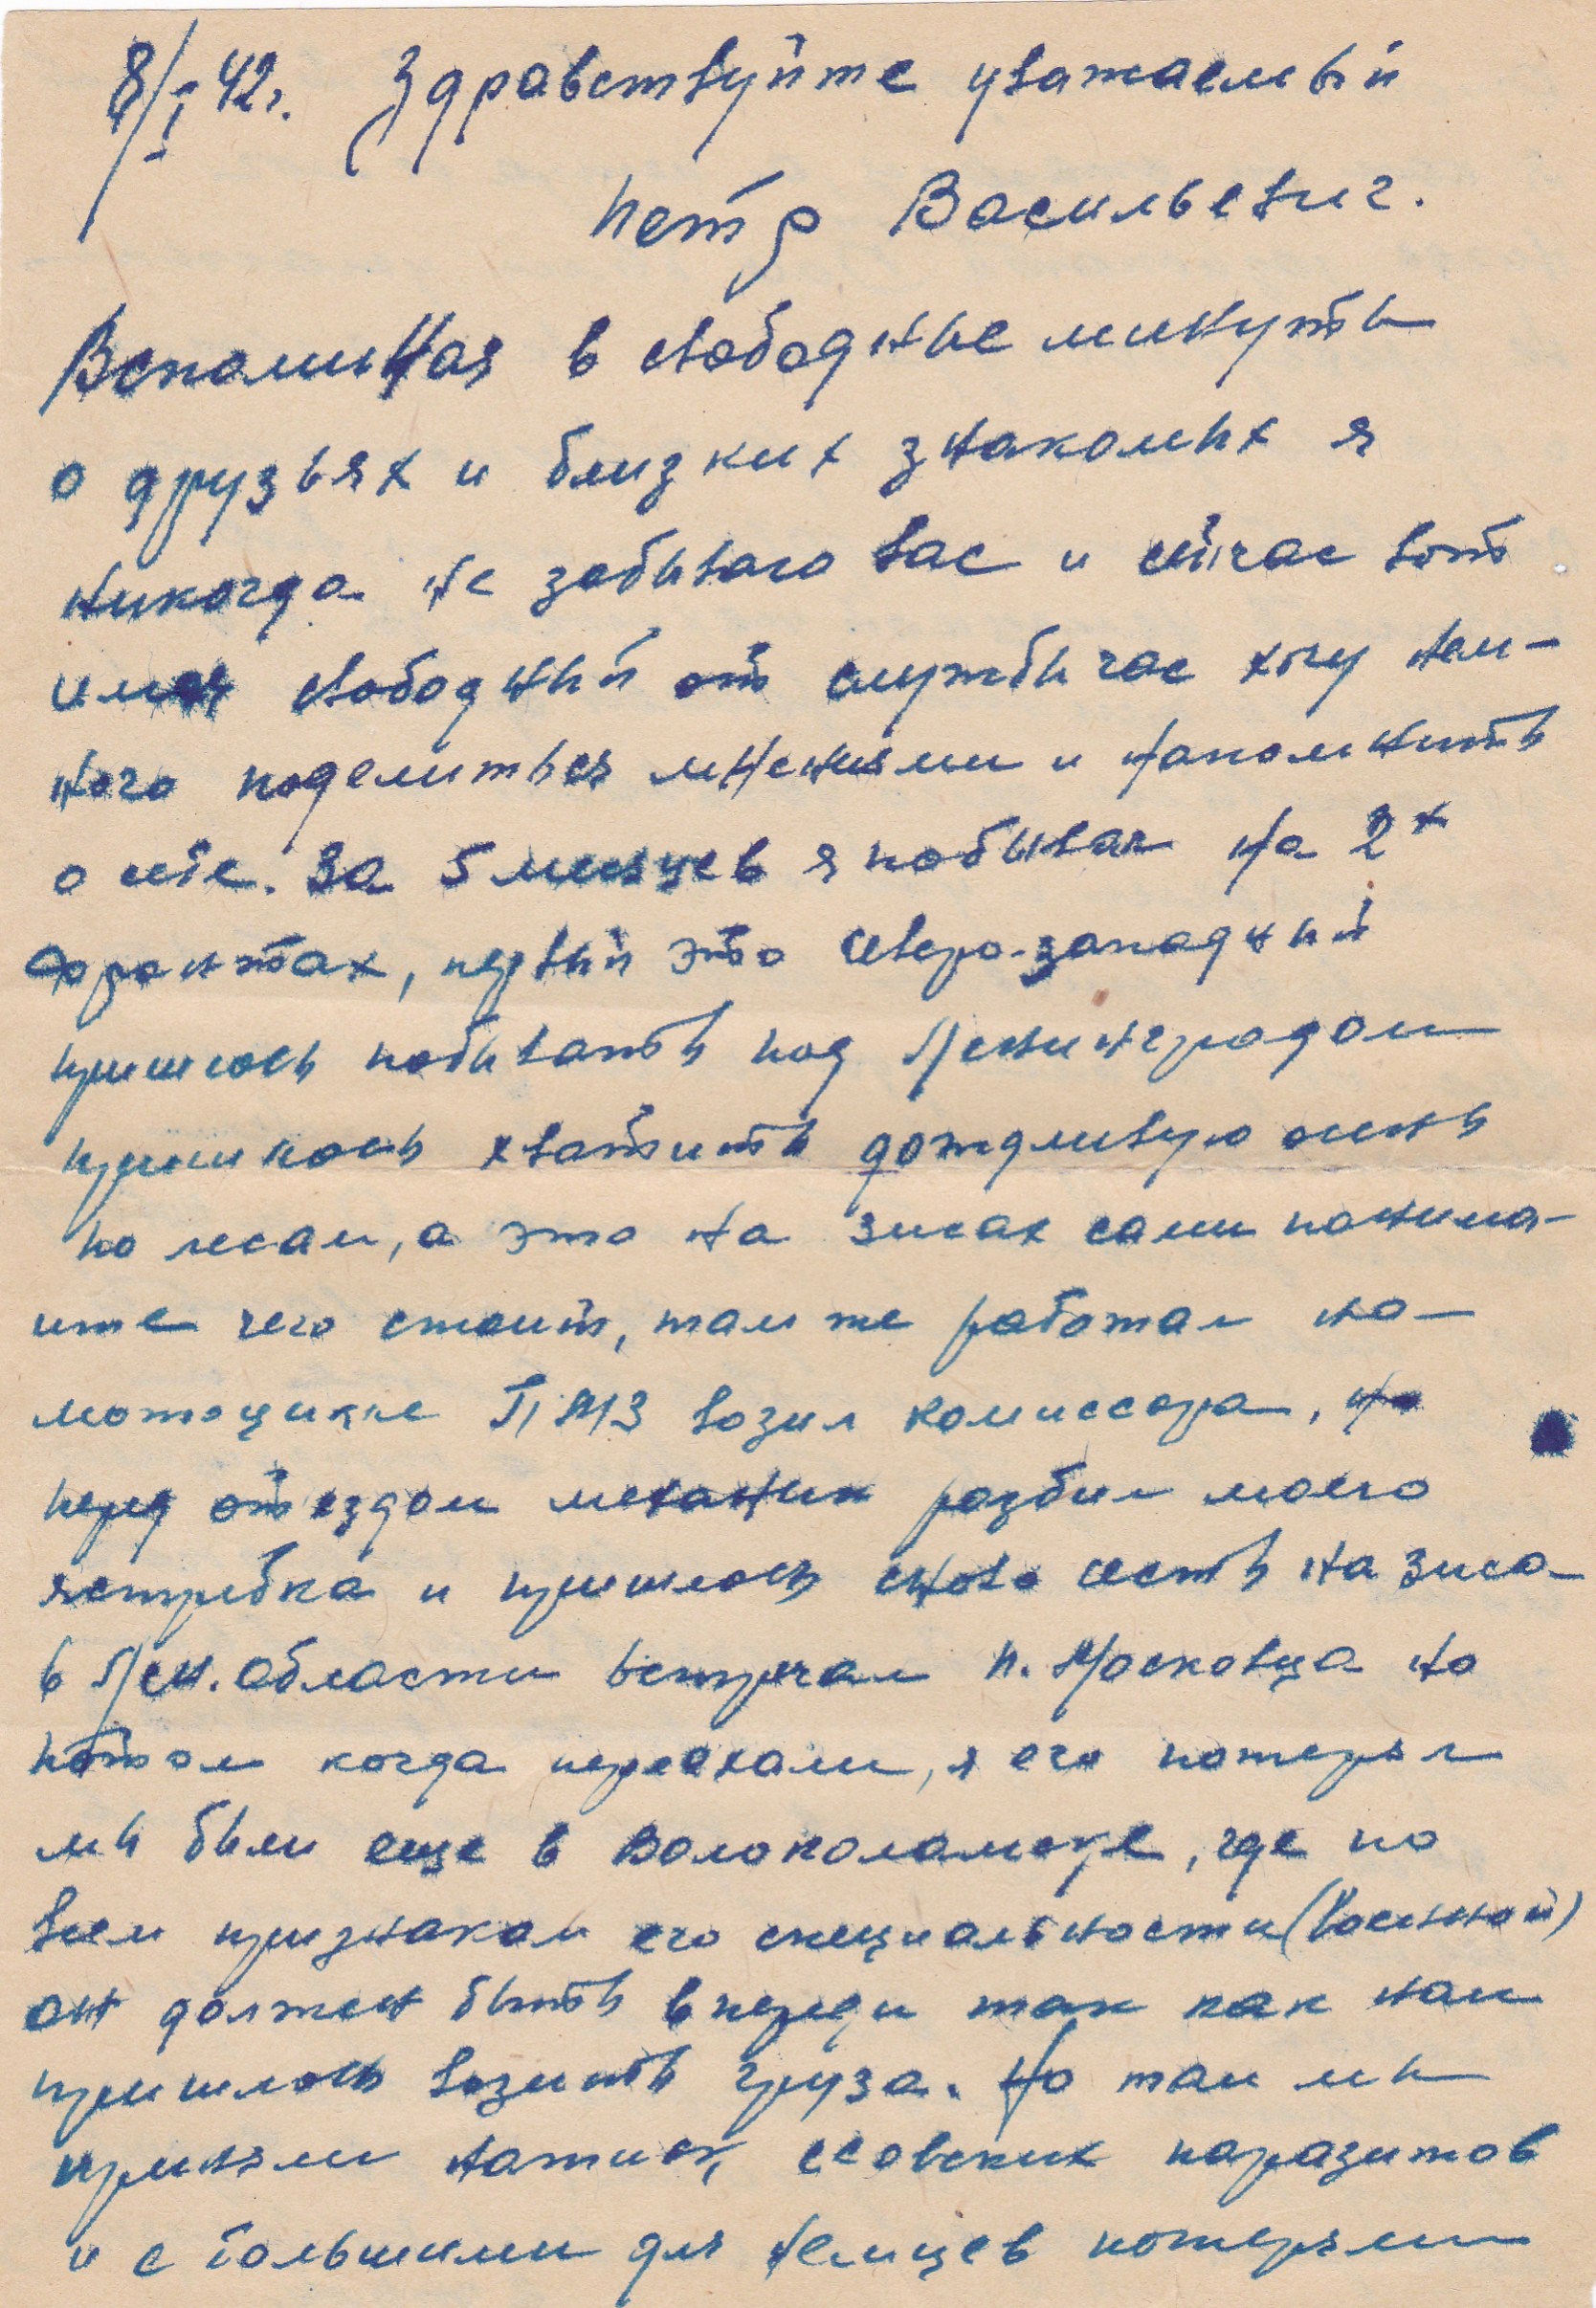 8/I 42г. Здравствуйте уважаемый
Петр Васильевич.
Вспоминая в свободные минуты
о друзьях и близких знакомых я
никогда не забываю вас и сейчас вот
имея свободный от службы час хочу нем-
ного поделиться мнениями и напомнить
о себе. За 5 месяцев я побывал на 2х
фронтах, первый это северо-западный
пришлось побывать под Ленинградом
пришлось хватить дождливую осень
по лесам, а это на зисах сами понима-
ите чего стоит, там же работал на-
мотоцикле ПМЗ возил комиссара, но
перед отъездом механик разбил моего
ястребка и пришлось снова сесть на зиса-
в Лен. области встречал п. Московца но
потом когда переехали, я его потерял
мы были еще в Волоколамске, где по
всем признакам его специальности (военной)
он должен быть впереди так как нам
пришлось возить груза. Но там мы
приняли натиск, ссовских паразитов
и с большими для немцев потерями